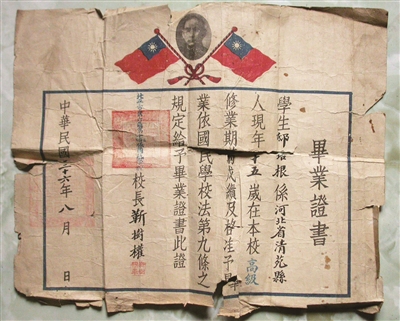 畢業證書
學生 根係河北省清苑縣
人現年十五歲在本校高級
修業期滿成績及格准予畢
業依國民學校法第九條之
規定給予畢業證書此證
校長靳樹權
中華民國三十六年八月 日